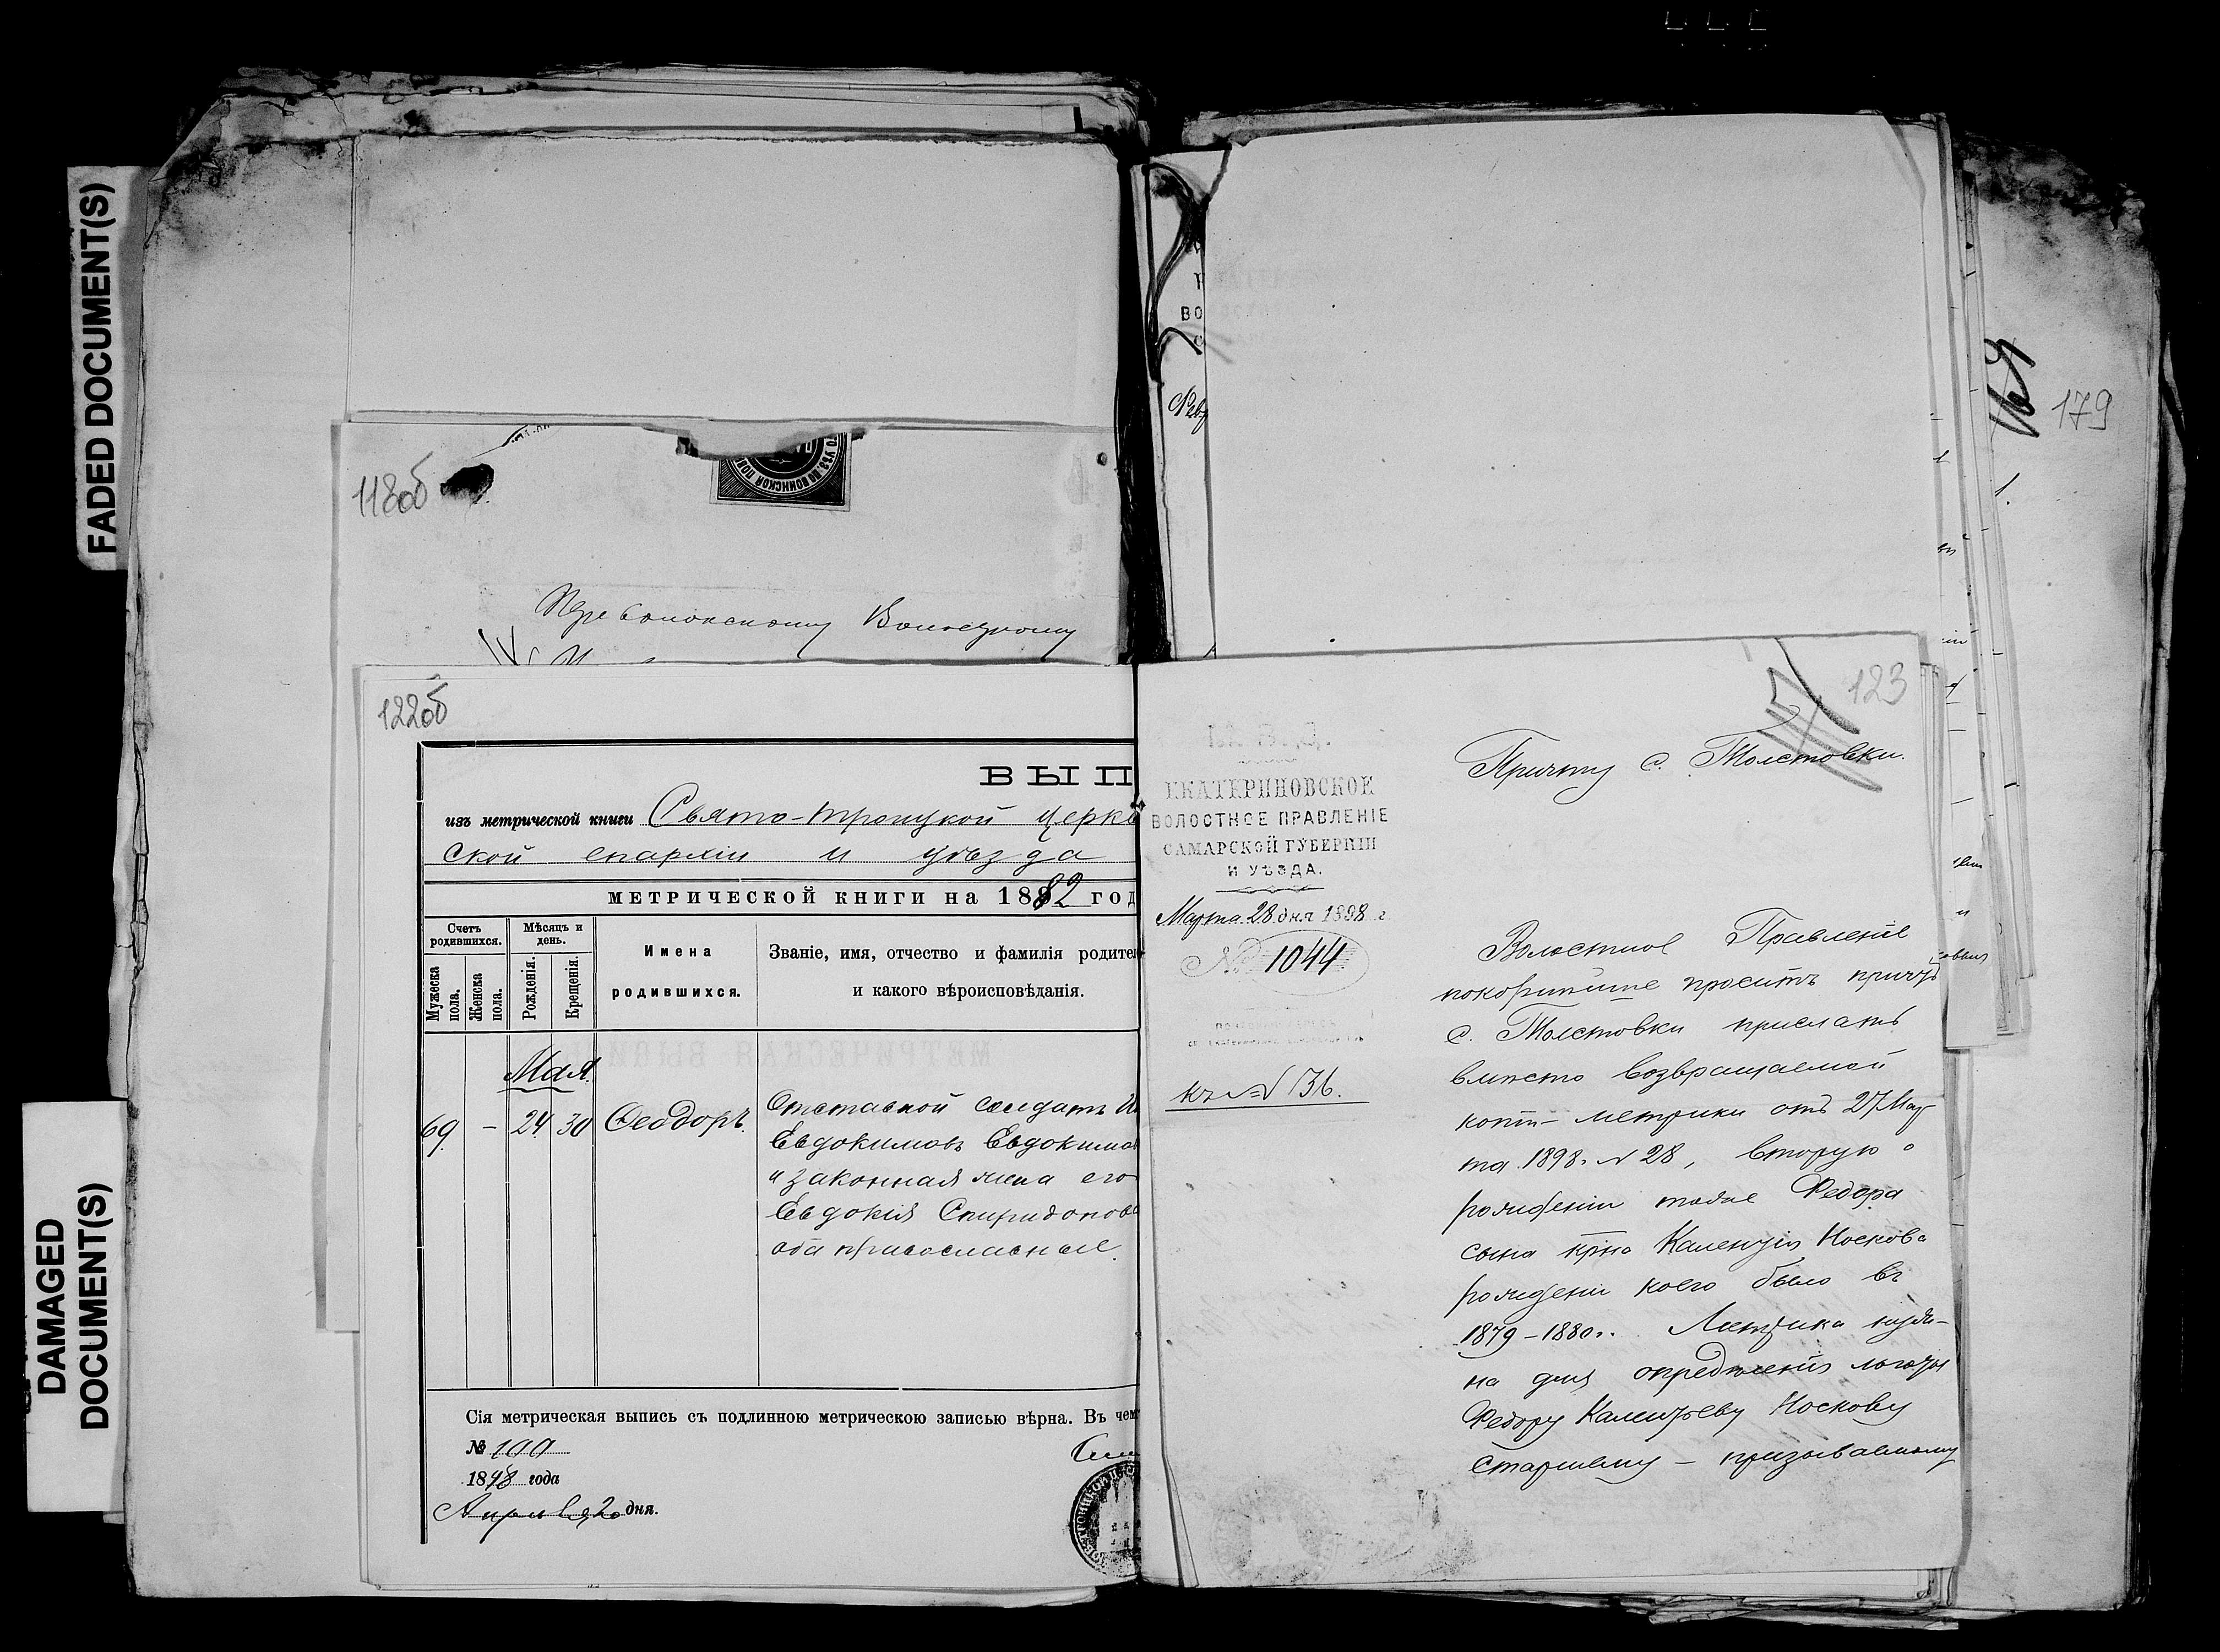 FADED DOCUMENT(S)
DAMAGED
DOCUMENT(S)
118об
Волостному
122об
ВЫП
изъ метрической книги Свято-Троицкой церкв
ской епархіи и уѣзда
МЕТРИЧЕСКОЙ КНИГИ на 1882 год
Счетъ родившихся.
Мужеска пола.
Женска пола.
Мѣсяцъ и день.
Рожденія.
Крещенія.
Имена
родившихся.
Званіе, имя, отчество и фамилія родител
и какого вѣроисповѣданія.
Мая
69. – 24. 30 Ѳеодоръ.
Отставной солдатъ И
Евдокимовъ Евдокимо
и законная жена его
Евдокія Спиридонов
оба православные.
Сія метрическая выпись съ подлинною метрическою записью вѣрна. Въ чем
№ 100
1898 года
Апрѣля 20 дня.
179
123
М. В. Д.
ЕКАТЕРИНОВСКОЕ
ВОЛОСТНОЕ ПРАВЛЕНІЕ
САМАРСКОЙ ГУБЕРНІИ
И УѢЗДА.
Марта 28 дня 1898 г.
№ 1044
къ № 136.
Причту с. Толстовки.
Волостное Правленіе
покорнѣйше проситъ причтъ
с. Толстовки прислать
вмѣсто возвращаемой
копіи метрики отъ 27 Мар
та 1898 г. № 28, вторую о
рожденіи тоже Федора
сына крно Калентія Носкова
рожденіи коего было въ
1879–1880 г. Метрика нуж
на для опредѣленія льготы
Федору Калентьеву Носкову
Старшему – призываемому